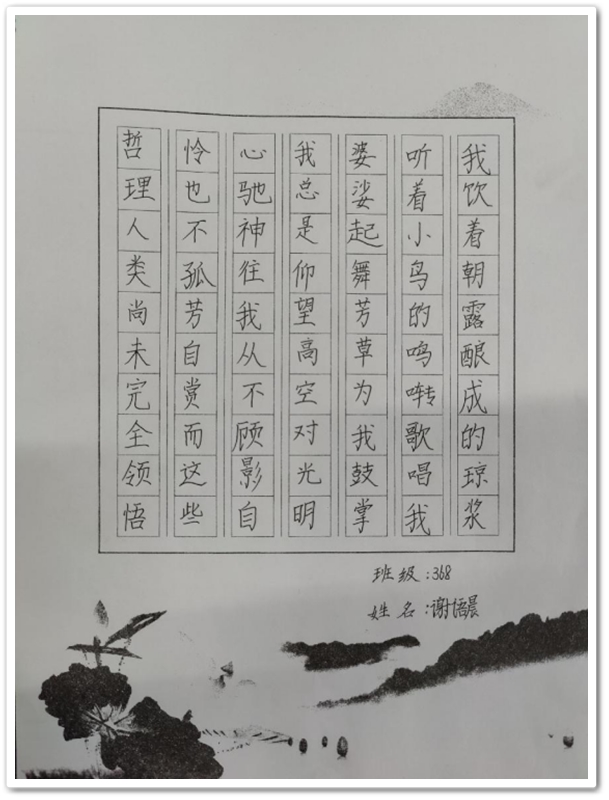 我饮着朝露酿成的琼浆
听着小鸟的鸣啭歌唱我
婆娑起舞芳草为我鼓掌
我总是仰望高空对光明
心驰神往我从不顾影自
怜也不孤芳自赏而这些
哲理人类尚未完全领悟
班级:368
姓名:谢语晨